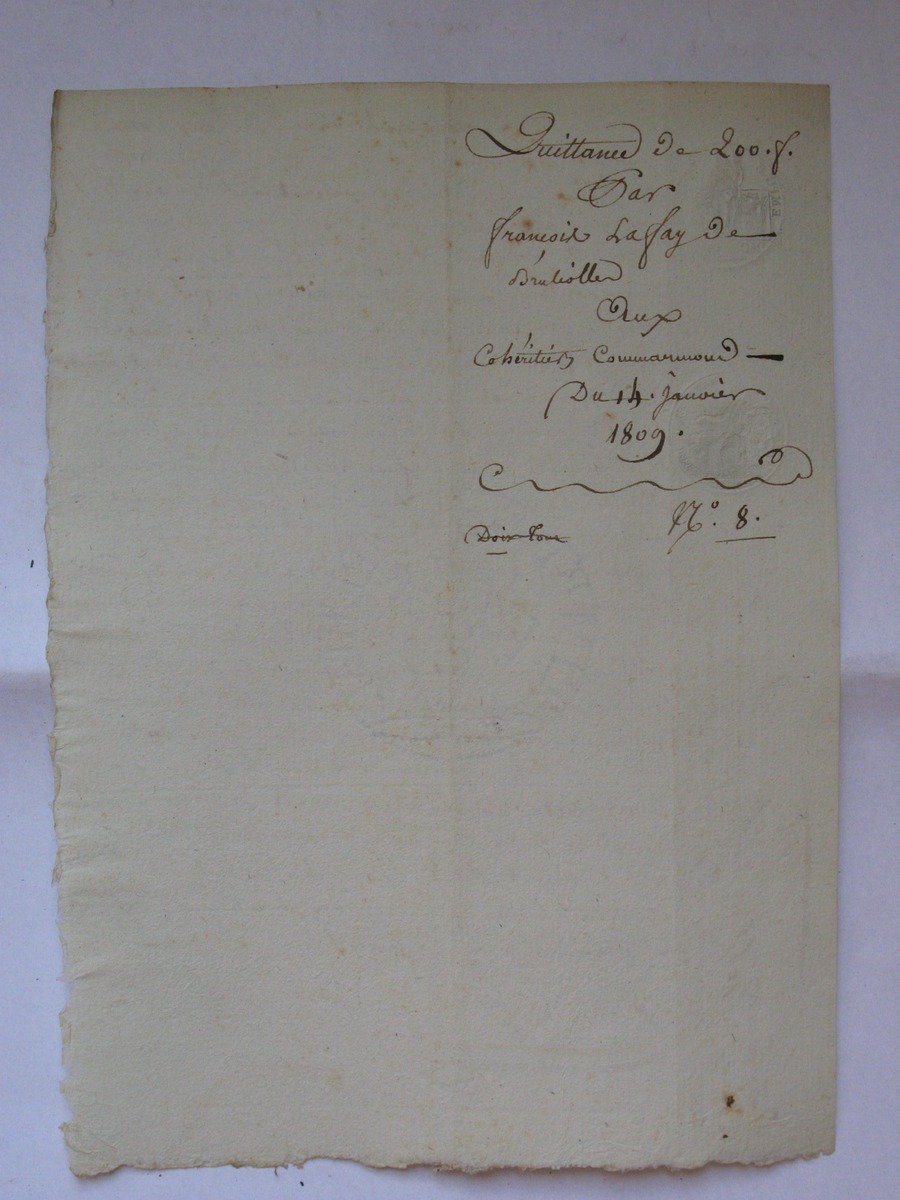 Quittance de 200. f.
Par
françois Laffay de
Brulliolle
Aux
Cohéritiers Commarmond
Du 14. janvier
1809.
N.o 8.